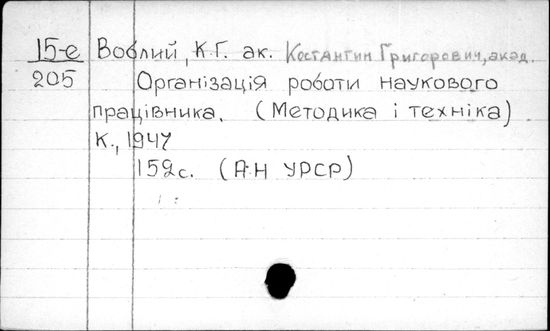 15-е Воблий, К.Г. ак. Костянтин Григорович, акад.
205 Організація роботи наукового
працівника. (Методика і техніка)
К., 1947
152с. (АН УРСР)